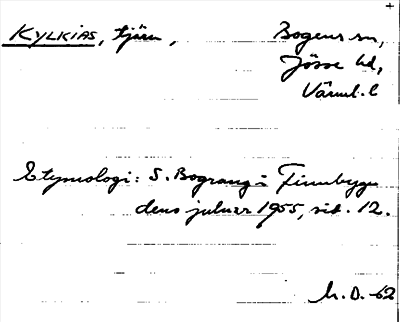 KYLKIAS, tjärn,
Bogens sn,
Jösse hd,
Värml. l
Etymologi: S. Bograng i Finnbygdens
julnr 1955, sid. 12.
N. D. -62